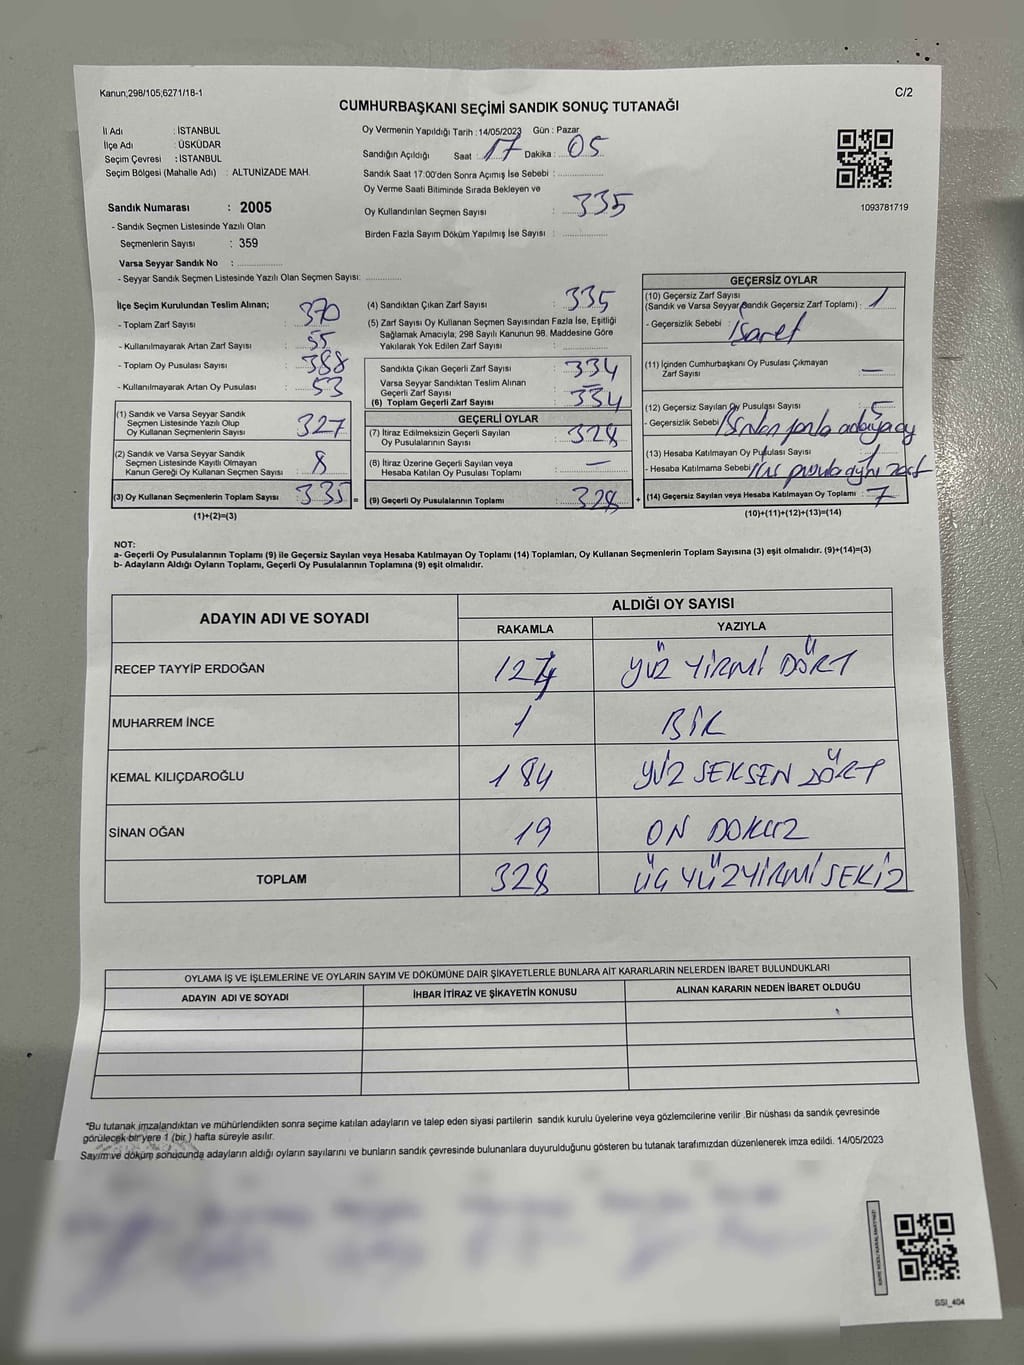 Kanun,298/105,6271/18-1
C/2
CUMHURBAŞKANI SEÇİMİ SANDIK SONUÇ TUTANAĞI
İl Adı : İSTANBUL
İlçe Adı : ÜSKÜDAR
Seçim Çevresi : İSTANBUL
Seçim Bölgesi (Mahalle Adı) : ALTUNİZADE MAH.
Sandık Numarası : 2005
- Sandık Seçmen Listesinde Yazılı Olan
Seçmenlerin Sayısı : 359
Varsa Seyyar Sandık No :
- Seyyar Sandık Seçmen Listesinde Yazılı Olan Seçmen Sayısı:
Oy Vermenin Yapıldığı Tarih : 14/05/2023 Gün : Pazar
Sandığın Açıldığı Saat : 17 Dakika : 05
Sandık Saat 17:00'den Sonra Açımış İse Sebebi :
Oy Verme Saati Bitiminde Sırada Bekleyen ve
Oy Kullandırılan Seçmen Sayısı : 335
Birden Fazla Sayım Döküm Yapılmış İse Sayısı :
1093781719
İlçe Seçim Kurulundan Teslim Alınan;
- Toplam Zarf Sayısı : 370
- Kullanılmayarak Artan Zarf Sayısı : 55
- Toplam Oy Pusulası Sayısı : 388
- Kullanılmayarak Artan Oy Pusulası : 53
(1) Sandık ve Varsa Seyyar Sandık
Seçmen Listesinde Yazılı Olup
Oy Kullanan Seçmenlerin Sayısı 327
(2) Sandık ve Varsa Seyyar Sandık
Seçmen Listesinde Kayıtlı Olmayan
Kanun Gereği Oy Kullanan Seçmen Sayısı 8
(3) Oy Kullanan Seçmenlerin Toplam Sayısı 335 =
(1)+(2)=(3)
(4) Sandıktan Çıkan Zarf Sayısı : 335
(5) Zarf Sayısı Oy Kullanan Seçmen Sayısından Fazla İse, Eşitliği
Sağlamak Amacıyla; 298 Sayılı Kanunun 98. Maddesine Göre
Yakılarak Yok Edilen Zarf Sayısı :
Sandıkta Çıkan Geçerli Zarf Sayısı : 334
Varsa Seyyar Sandıktan Teslim Alınan
Geçerli Zarf Sayısı : —
(6) Toplam Geçerli Zarf Sayısı : 334
GEÇERLİ OYLAR
(7) İtiraz Edilmeksizin Geçerli Sayılan
Oy Pusulasının Sayısı : 328
(8) İtiraz Üzerine Geçerli Sayılan veya
Hesaba Katılan Oy Pusulası Toplamı : —
(9) Geçerli Oy Pusulalarının Toplamı : 328 +
GEÇERSİZ OYLAR
(10) Geçersiz Zarf Sayısı
(Sandık ve Varsa Seyyar Sandık Geçersiz Zarf Toplamı) : 1
- Geçersizlik Sebebi : İşaret
(11) İçinden Cumhurbaşkanı Oy Pusulası Çıkmayan
Zarf Sayısı : —
(12) Geçersiz Sayılan Oy Pusulası Sayısı : 5
- Geçersizlik Sebebi Birden fazla adaya oy
(13) Hesaba Katılmayan Oy Pusulası Sayısı : 1
- Hesaba Katılmama Sebebi pusula aynı zarf
(14) Geçersiz Sayılan veya Hesaba Katılmayan Oy Toplamı : 7
(10)+(11)+(12)+(13)=(14)
NOT:
a- Geçerli Oy Pusulalarının Toplamı (9) ile Geçersiz Sayılan veya Hesaba Katılmayan Oy Toplamı (14) Toplamları, Oy Kullanan Seçmenlerin Toplam Sayısına (3) eşit olmalıdır. (9)+(14)=(3)
b- Adayların Aldığı Oyların Toplamı, Geçerli Oy Pusulalarının Toplamına (9) eşit olmalıdır.
ADAYIN ADI VE SOYADI
ALDIĞI OY SAYISI
RAKAMLA YAZIYLA
RECEP TAYYİP ERDOĞAN 124 YÜZ YİRMİ DÖRT
MUHARREM İNCE 1 BİR
KEMAL KILIÇDAROĞLU 184 YÜZ SEKSEN DÖRT
SİNAN OĞAN 19 ON DOKUZ
TOPLAM 328 ÜÇ YÜZYİRMİ SEKİZ
OYLAMA İŞ VE İŞLEMLERİNE VE OYLARIN SAYIM VE DÖKÜMÜNE DAİR ŞİKAYETLERLE BUNLARA AİT KARARLARIN NELERDEN İBARET BULUNDUKLARI
ADAYIN ADI VE SOYADI İHBAR İTİRAZ VE ŞİKAYETİN KONUSU ALINAN KARARIN NEDEN İBARET OLDUĞU
*Bu tutanak imzalandıktan ve mühürlendikten sonra seçime katılan adayların ve talep eden siyasi partilerin sandık kurulu üyelerine veya gözlemcilerine verilir .Bir nüshası da sandık çevresinde
görülecek bir yere 1 (bir ) hafta süreyle asılır.
Sayım ve döküm sonucunda adayların aldığı oyların sayılarını ve bunların sandık çevresinde bulunanlara duyurulduğunu gösteren bu tutanak tarafımızdan düzenlenerek imza edildi. 14/05/2023
SSI_404